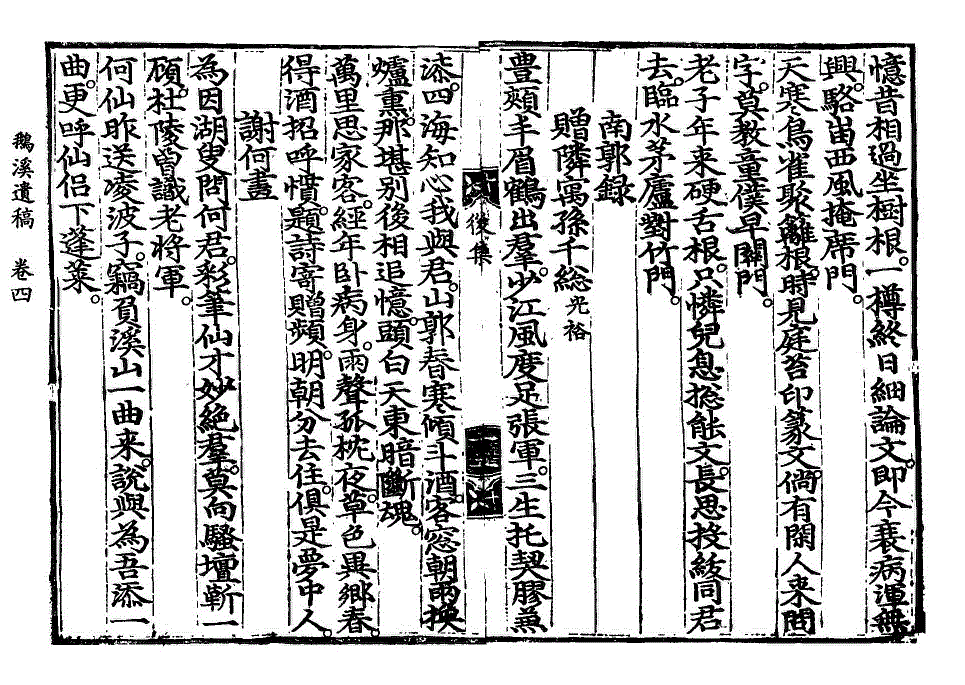 憶昔相過坐樹根一樽終日細論文即今衰病渾無
興駱崮西風掩席門
天寒鳥雀聚籬根時見庭苔印篆文倘有閑人来問
字莫教童僕早關門
老子年来硬舌根只憐兒息捴能文長思投紱同君
去臨水茅廬對竹門
南郭録
贈隣寓孫千総光裕
豊頰丰眉鶴出羣少江風度足張軍三生托契膠兼
後集
漆四海知心我與君山郭春寒傾斗酒客窓朝雨撥
爐熏那堪别後相追憶頭白天東暗斷魂
萬里思家客經年卧病身雨聲孤枕夜草色異鄉春
得酒招呼慣題詩寄贈頻明朝分去住俱是夢中人
謝何畫
為因湖叟問何君彩筆仙才妙絶羣莫向騷壇斬一
頎杜陵曾識老將軍
何仙昨送凌波子竊負溪山一曲来說與為吾添一
曲更呼仙侣下蓬萊
鵝溪遺稿 卷四